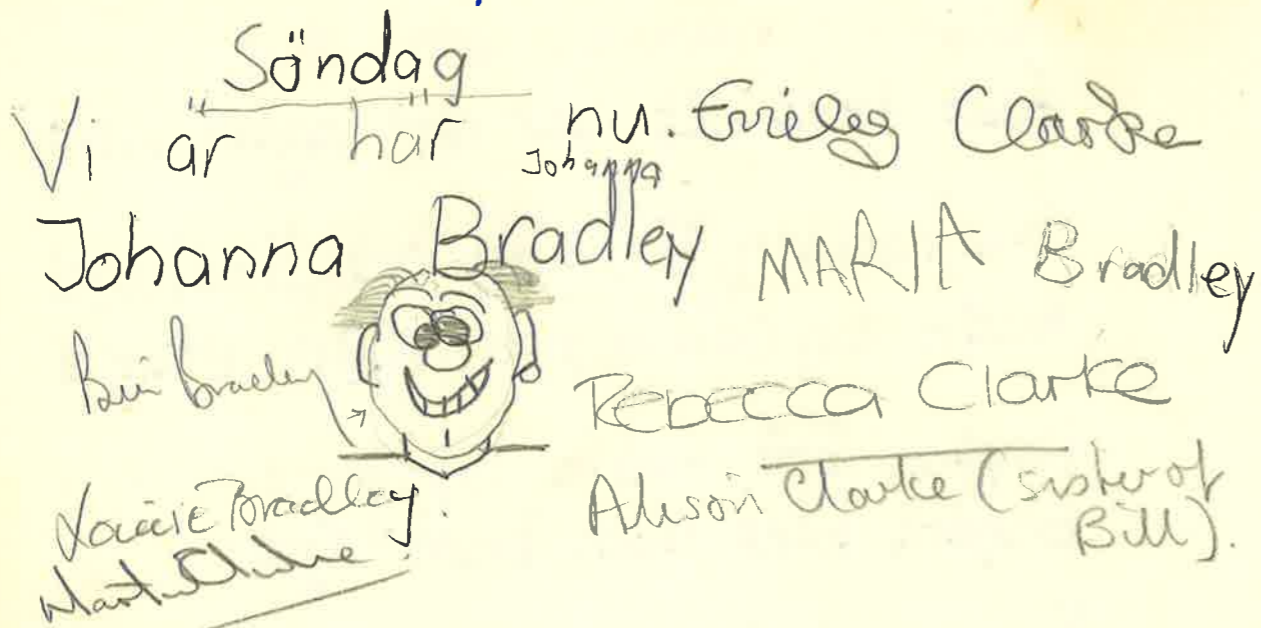 Söndag
Vi är här nu. Emily Clarke
Johanna
Johanna Bradley MARIA Bradley
Bill Bradley
Rebecca Clarke
Bradley.
Alison Clarke (sister of
Bill).
Clarke